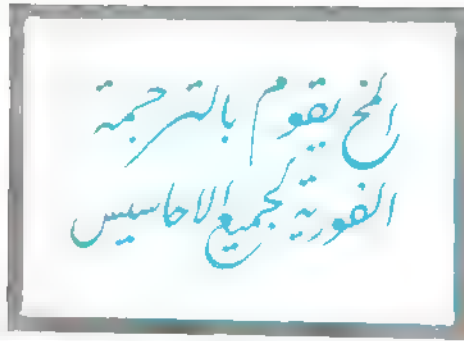 المخ يقوم بالترجمة
الفورية لجميع الاحاسيس